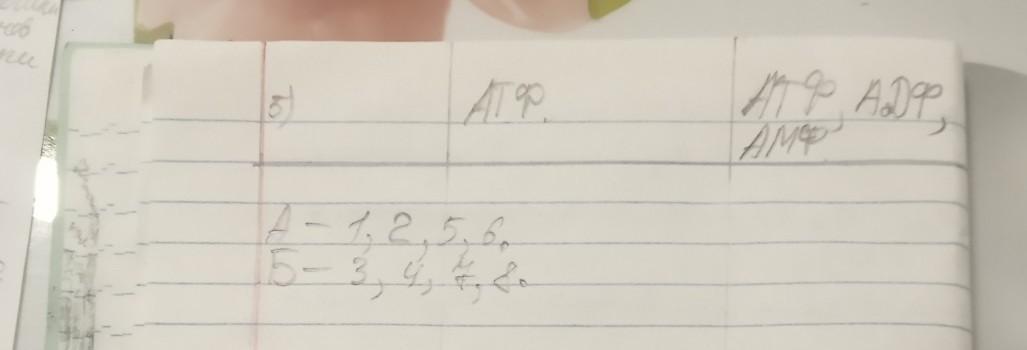 5) АТФ. АТФ, АДФ,
АМФ
А – 1, 2, 5, 6.
Б – 3, 4, 7, 8.